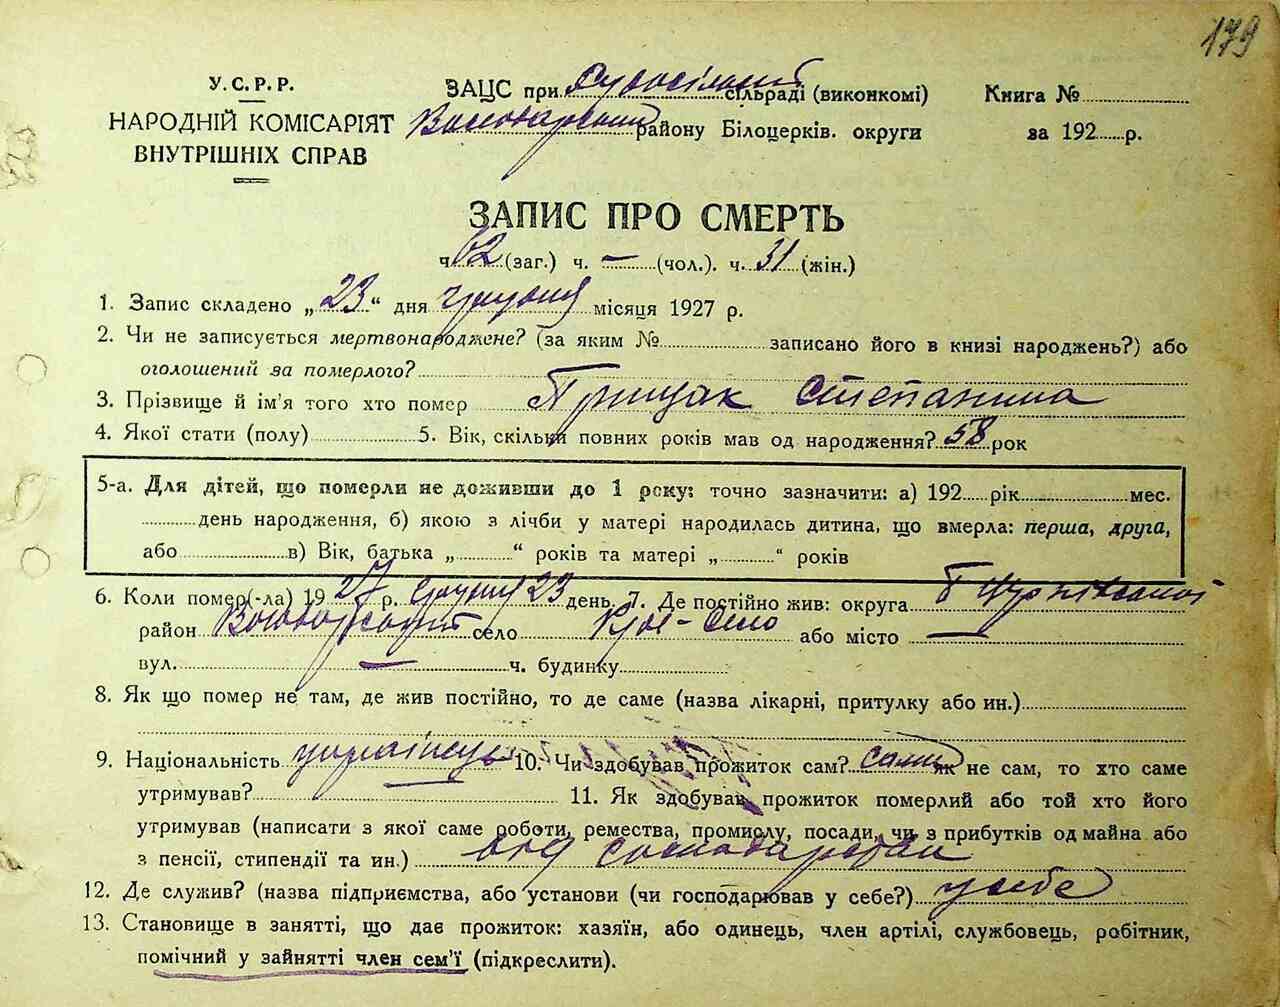 179
У.С.Р.Р.
НАРОДНІЙ КОМІСАРІЯТ
ВНУТРІШНІХ СПРАВ
ЗАЦС при сільраді (виконкомі)
Володарський району Білоцерків. округи
Книга №
за 192 р.
ЗАПИС ПРО СМЕРТЬ
ч 62 (заг.) ч. — (чол.). ч. 31 (жін.)
1. Запис складено „23“ дня грудня місяця 1927 р.
2. Чи не записується мертвонароджене? (за яким № записано його в книзі народжень?) або
оголошений за померлого?
3. Прізвище й ім'я того хто помер Грицак Степанида
4. Якої стати (полу) 5. Вік, скільки повних років мав од народження? 58 рок
5-а. Для дітей, що померли не доживши до 1 року: точно зазначити: а) 192 рік мес.
день народження, б) якою з лічби у матері народилась дитина, що вмерла: перша, друга,
або в) Вік, батька „ “ років та матері „ “ років
6. Коли помер(-ла) 1927 р. грудня 23 день. 7. Де постійно жив: округа
район Володарський село або місто —
вул. — ч. будинку
8. Як що помер не там, де жив постійно, то де саме (назва лікарні, притулку або ин.)
9. Національність українець 10. Чи здобував прожиток сам? сам як не сам, то хто саме
утримував? 11. Як здобував прожиток померлий або той хто його
утримував (написати з якої саме роботи, ремества, промислу, посади, чи з прибутків од майна або
з пенсії, стипендії та ин.) від
12. Де служив? (назва підприємства, або установи (чи господарював у себе?) у себе
13. Становище в занятті, що дає прожиток: хазяїн, або одинець, член артілі, службовець, робітник,
помічний у зайнятті член сем'ї (підкреслити).